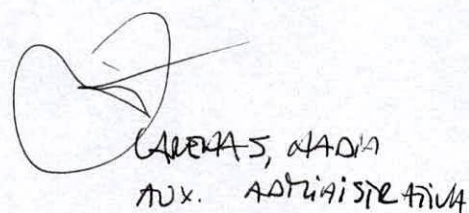 CARENAS, NADIA
AUX. ADMINISTRATIVA